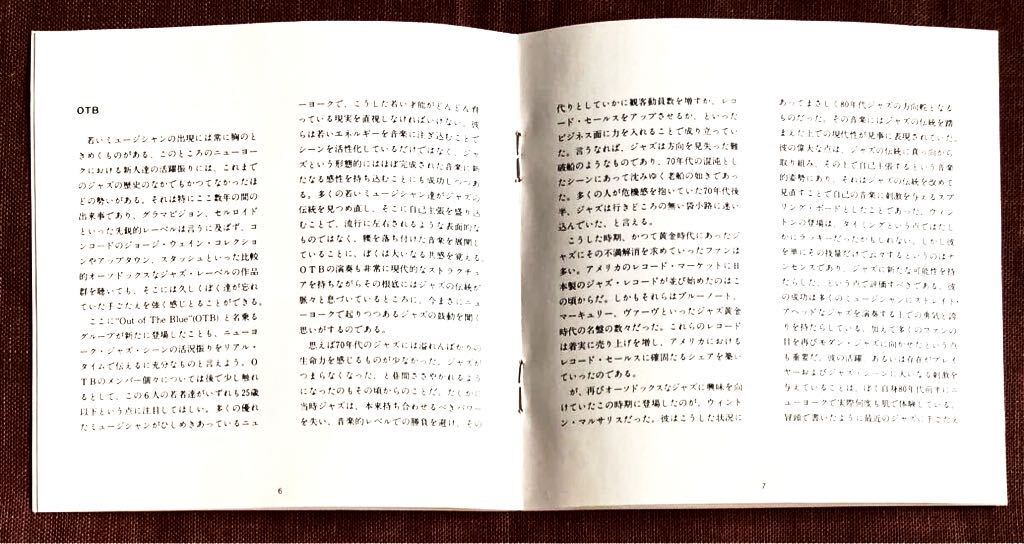 OTB
若いミュージシャンの出現には常に胸のと
きめくものがある。このところのニューヨー
クにおける新人達の活躍振りには、これまで
のジャズの歴史のなかでもかつてなかったほ
どの勢いがある。それは特にここ数年の間の
出来事であり、グラマビジョン、セルロイド
といった先鋭的レーベルは言うに及ばず、コ
ンコードのジョージ・ウェイン・コレクショ
ンやアップタウン、スタッシュといった比較
的オーソドックスなジャズ・レーベルの作品
群を聴いても、そこには久しくぼく達が忘れ
ていた手ごたえを強く感じることができる。
ここに“Out of The Blue”(OTB)と名乗る
グループが新たに登場したことも、ニューヨ
ーク・ジャズ・シーンの活況振りをリアル・
タイムで伝えるに充分なものと言えよう。O
TBのメンバー個々については後で少し触れ
るとして、この6人の若者達がいずれも25歳
以下という点に注目してほしい。多くの優れ
たミュージシャンがひしめきあっているニュ
ーヨークで、こうした若い才能がどんどん育
っている現実を直視しなければいけない。彼
らは若いエネルギーを音楽に注ぎ込むことで
シーンを活性化しているだけではなく、ジャ
ズという形態的にはほぼ完成された音楽に新
たなる感性を持ち込むことにも成功しつつあ
る。多くの若いミュージシャン達がジャズの
伝統を見つめ直し、そこに自己主張を盛り込
むことで、流行に左右されるような表面的な
ものではなく、腰を落ち付けた音楽を展開し
ていることに、ぼくは大いなる共感を覚える。
OTBの演奏も非常に現代的なストラクチュ
アを持ちながらその根底にはジャズの伝統が
脈々と息づいているところに、今まさにニュ
ーヨークで起りつつあるジャズの鼓動を聞く
思いがするのである。
思えば70年代のジャズには溢れんばかりの
生命力を感じるものが少なかった。ジャズが
つまらなくなった、と巷間ささやかれるよう
になったのもその頃からのことだ。たしかに
当時ジャズは、本来持ち合わせるべきパワー
を失い、音楽的レベルでの勝負を避け、その
6
代りとしていかに観客動員数を増すか、レコ
ード・セールスをアップさせるか、といった
ビジネス面に力を入れることで成り立ってい
た。言うなれば、ジャズは方向を見失った難
破船のようなものであり、70年代の混沌とし
たシーンにあって沈みゆく老船の如きであっ
た。多くの人が危機感を抱いていた70年代後
半、ジャズは行きどころの無い袋小路に迷い
込んでいた、と言える。
こうした時期、かつて黄金時代にあったジ
ャズにその不満解消を求めていったファンは
多い。アメリカのレコード・マーケットに日
本製のジャズ・レコードが並び始めたのはこ
の頃からだ。しかもそれらはブルーノート、
マーキュリー、ヴァーヴといったジャズ黄金
時代の名盤の数々だった。これらのレコード
は着実に売り上げを増し、アメリカにおける
レコード・セールスに確固たるシェアを築い
ていったのである。
が、再びオーソドックスなジャズに興味を向
けていたこの時期に登場したのが、ウィント
ン・マルサリスだった。彼はこうした状況に
あってまさしく80年代ジャズの方向舵となる
ものだった。その音楽にはジャズの伝統を踏
まえた上での現代性が見事に表現されていた。
彼の偉大な点は、ジャズの伝統に真っ向から
取り組み、その上で自己主張するという音楽
的姿勢にあり、それはジャズの伝統を改めて
見直すことで自己の音楽に刺激を与えるスプ
リング・ボードとしたことであった。ウィン
トンの登場は、タイミングという点ではたし
かにラッキーだったかもしれない。しかし彼
を単にその技量だけで云々するというのはナ
ンセンスであり、ジャズに新たな可能性を持
たらした、という点で評価すべきである。彼
の成功は多くのミュージシャンにストレイト・
アヘッドなジャズを演奏する上での勇気と誇
りを持たらしている。加えて多くのファンの
目を再びモダン・ジャズに向かせたという点
も重要だ。彼の活躍 あるいは存在がプレイ
ヤーおよびジャズ・シーンに大いなる刺激を
与えていることは、ぼく自身80年代前半にニ
ューヨークで実際何度も肌で体験している。
冒頭で書いたように最近のジャズに手ごたえ
7